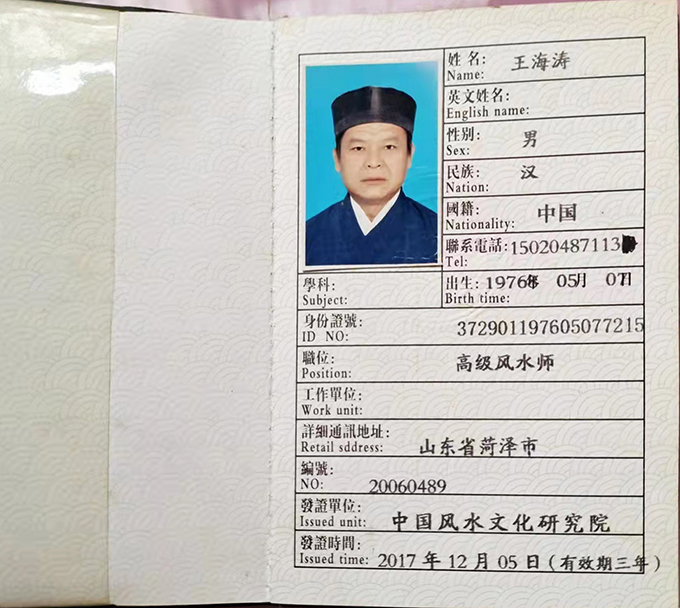 姓名: 王海涛
Name:
英文姓名:
English name:
性别: 男
Sex:
民族: 汉
Nation:
國籍: 中国
Nationality:
聯系電話: 15020487113
Tel:
學科:
Subject:
出生: 1976年 05月 07日
Birth time:
身份證號: 372901197605077215
ID NO:
職位: 高级风水师
Position:
工作單位:
Work unit:
詳細通訊地址: 山东省菏泽市
Retail sddress:
編號: 20060489
NO:
發證單位: 中国风水文化研究院
Issued unit:
發證時間: 2017 年 12 月 05 日 (有效期三年)
Issued time: